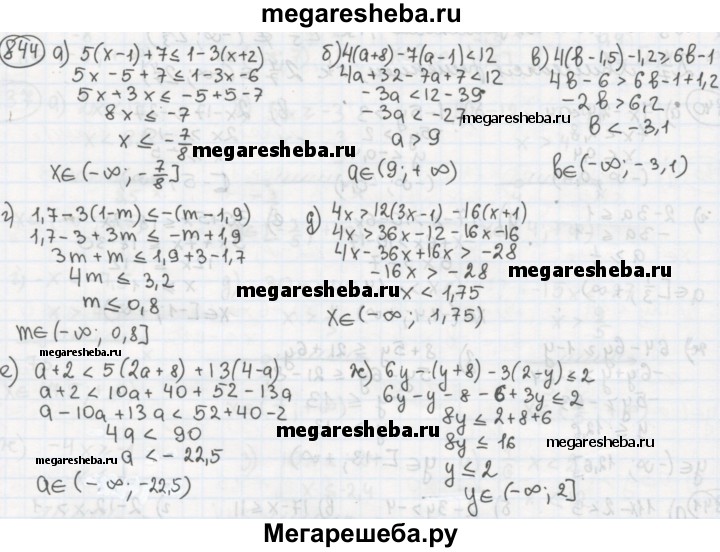 megaresheba.ru
844 а) 5(x-1)+7≤1-3(x+2)
5x-5+7≤1-3x-6
5x+3x≤-5+5-7
8x≤-7
x≤-7/8
x∈(-∞; -7/8]
б) 4(a+8)-7(a-1)<12
4a+32-7a+7<12
-3a<12-39
-3a<-27
a>9
a∈(9; +∞)
в) 4(b-1,5)-1,2≥6b-1
4b-6>6b-1+1,2
-2b>6,2
b≤-3,1
b∈(-∞; -3,1)
megaresheba.ru
megaresheba.ru
г) 1,7-3(1-m)≤-(m-1,9)
1,7-3+3m≤-m+1,9
3m+m≤1,9+3-1,7
4m≤3,2
m≤0,8
m∈(-∞; 0,8]
д) 4x>12(3x-1)-16(x+1)
4x>36x-12-16x-16
4x-36x+16x>-28
-16x>-28
x<1,75
x∈(-∞; 1,75)
megaresheba.ru
megaresheba.ru
megaresheba.ru
е) a+2<5(2a+8)+13(4-a)
a+2<10a+40+52-13a
a-10a+13a<52+40-2
4a<90
a<-22,5
a∈(-∞; -22,5)
ж) 6y-(y+8)-3(2-y)≤2
6y-y-8-6+3y≤2
8y≤2+8+6
8y≤16
y≤2
y∈(-∞; 2]
megaresheba.ru
megaresheba.ru
Мегарешеба.ру